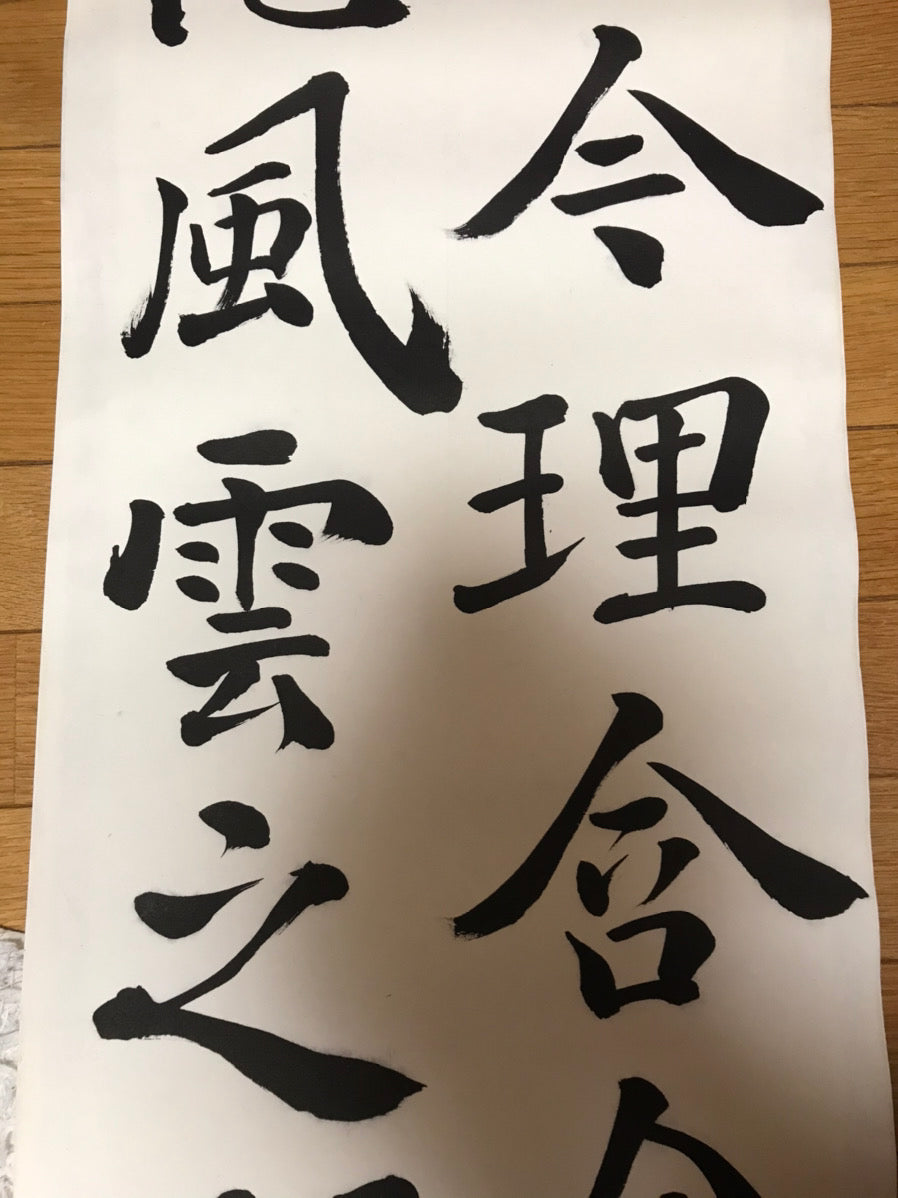 今理含
風雲之